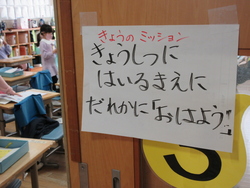 きょうの ミッション
きょうしつに
はいるまえに
だれかに「おはよう」